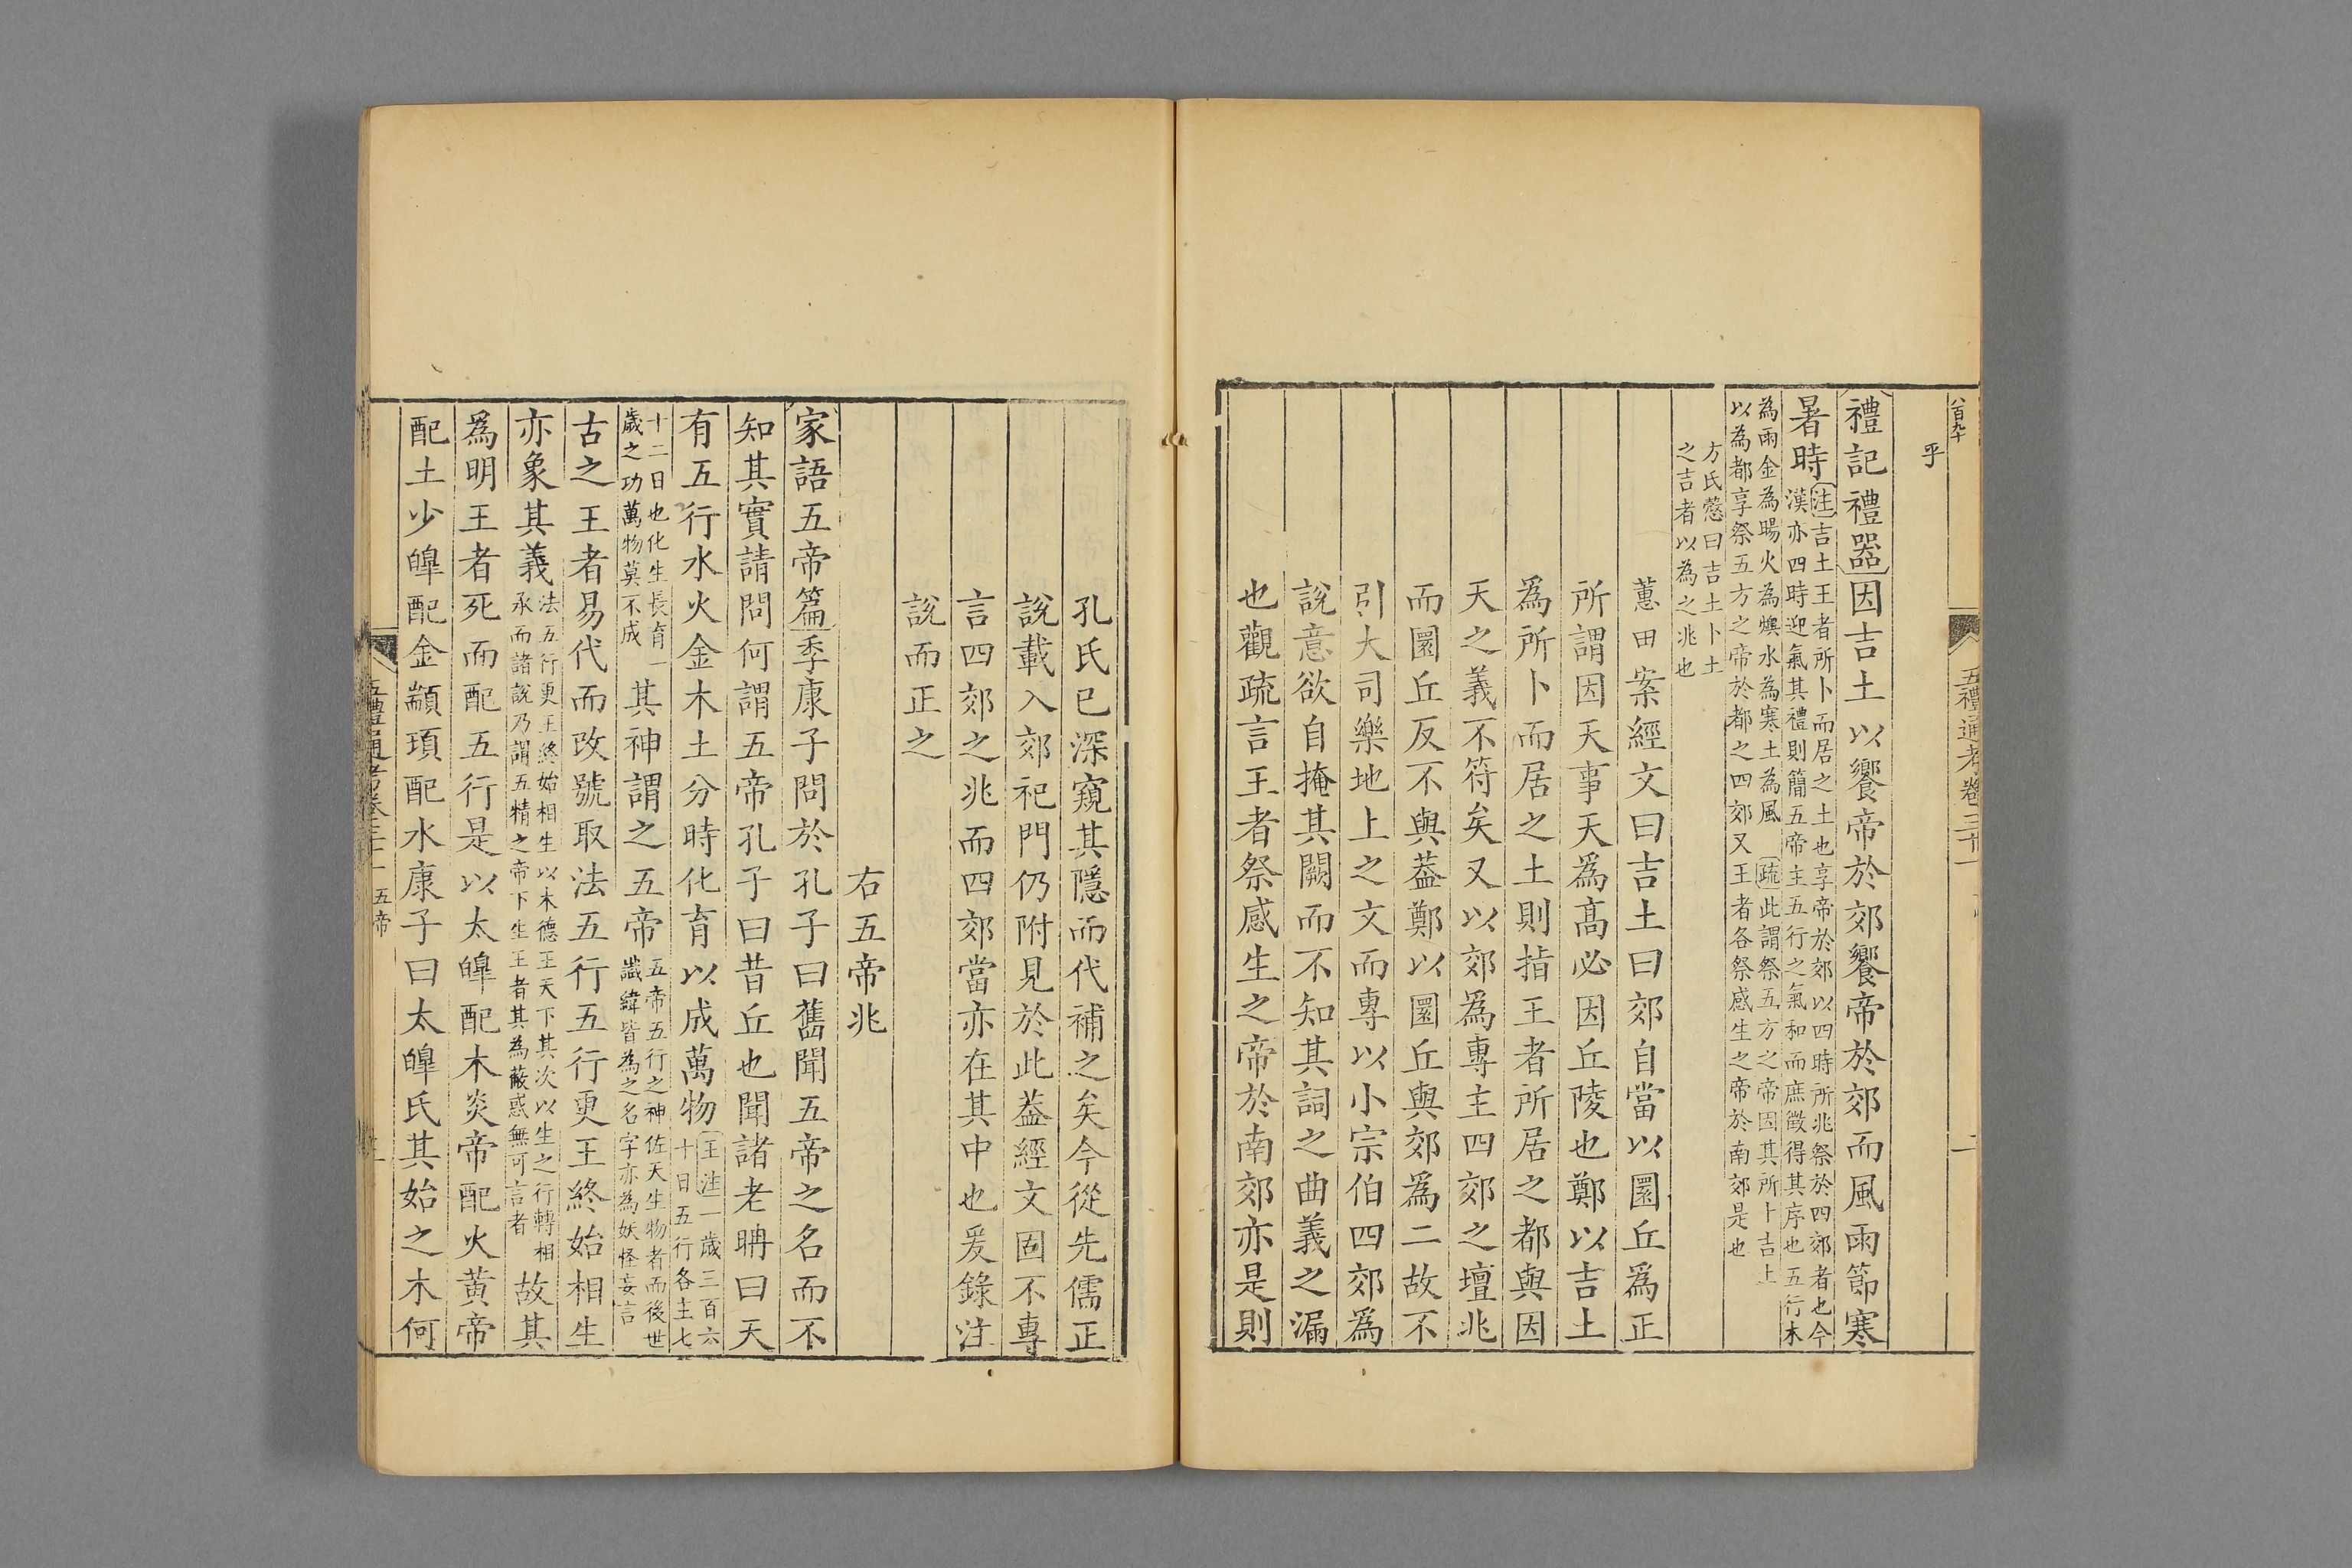 八百九十
五禮通考卷三十一
二
乎
禮記禮器因吉土以饗帝於郊饗帝於郊而風雨節寒
暑時
注吉土王者所卜而居之土也享帝於郊以四時所兆祭於四郊者也今
漢亦四時迎氣其禮則簡五帝主五行之氣和而庶徵得其序也五行木
為雨金為暘火為燠水為寒土為風 疏此謂祭五方之帝因其所卜吉土
以為都享祭五方之帝於都之四郊又王者各祭感生之帝於南郊是也
方氏慤曰吉土卜土
之吉者以為之兆也
蕙田案經文曰吉土曰郊自當以圜丘為正
所謂因天事天爲高必因丘陵也鄭以吉土
爲所卜而居之土則指王者所居之都與因
天之義不符矣又以郊爲專主四郊之壇兆
而圜丘反不與葢鄭以圜丘與郊爲二故不
引大司樂地上之文而專以小宗伯四郊爲
說意欲自掩其闕而不知其詞之曲義之漏
也觀疏言王者祭感生之帝於南郊亦是則
孔氏已深窺其隱而代補之矣今從先儒正
說載入郊祀門仍附見於此葢經文固不專
言四郊之兆而四郊當亦在其中也爰錄注
說而正之
右五帝兆
家語五帝篇季康子問於孔子曰舊聞五帝之名而不
知其實請問何謂五帝孔子曰昔丘也聞諸老聃曰天
有五行水火金木土分時化育以成萬物
王注一歲三百六
十日五行各主七
十二日也化生長育一
歲之功萬物莫不成
其神謂之五帝
五帝五行之神佐天生物者而後世
讖緯皆為之名字亦為妖怪妄言
古之王者易代而改號取法五行五行更王終始相生
亦象其義
法五行更王終始相生以木德王天下其次以生之行轉相
承而諸說乃謂五精之帝下生王者其為蔽惑無可言者
故其
爲明王者死而配五行是以太皥配木炎帝配火黃帝
配土少皥配金顓頊配水康子曰太皥氏其始之木何
五禮通考卷三十一 五帝